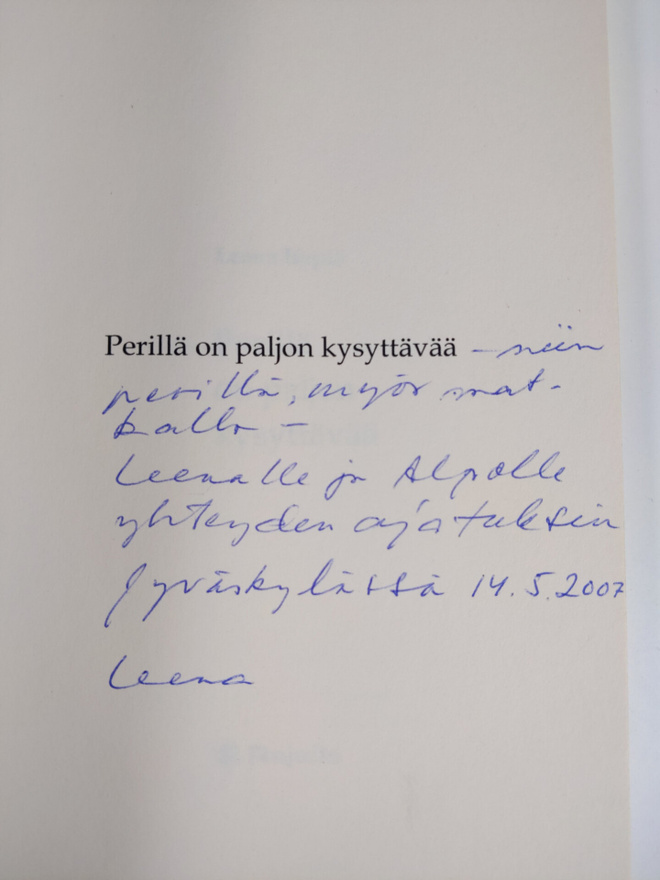 Perillä on paljon kysyttävää – niin
perillä, myös mat-
kalla –
Leenalle ja Alpolle
yhteyden ajatuksin
Jyväskylässä 14.5.2007
Leena